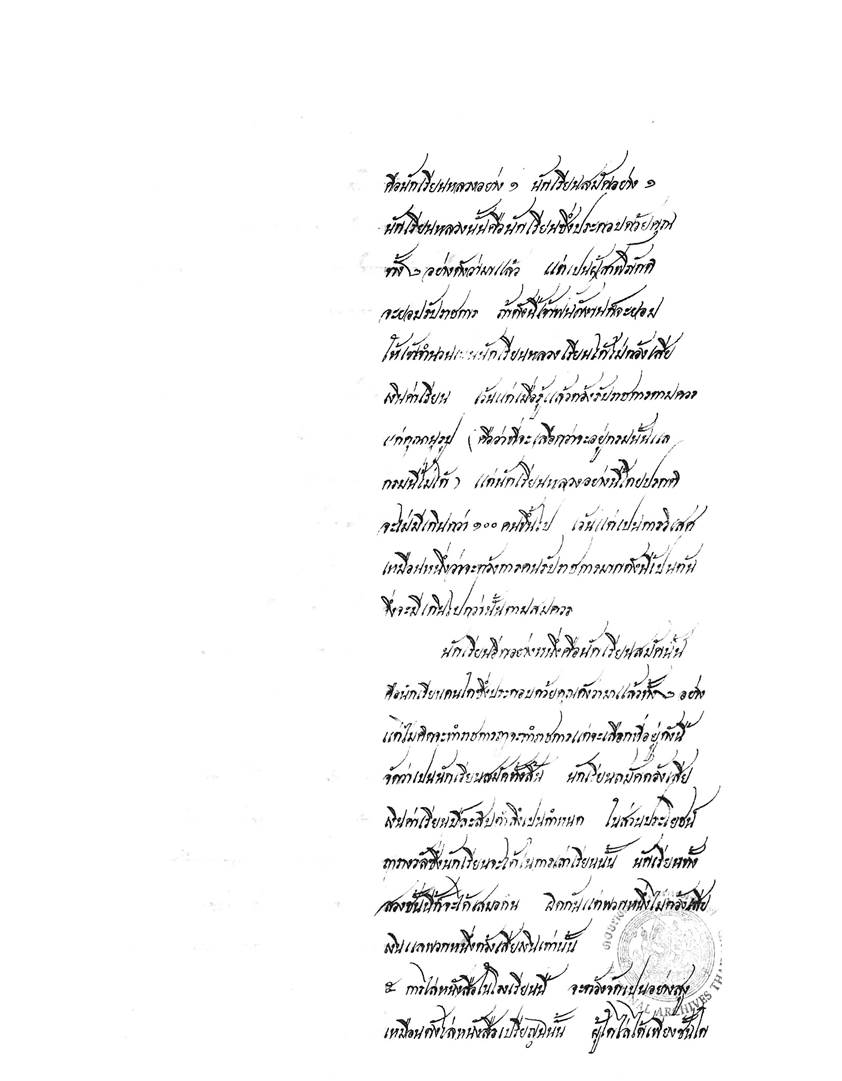 คือนักเรียนหลวงอย่าง ๑ นักเรียนสมัคอย่าง ๑
นักเรียนหลวงนั้นคือนักเรียนซึ่งประกอบด้วยคุณ
ทั้ง ๒ อย่างดังว่ามาแล้ว แต่เปนผู้สามิภักดิ
จะยอมรับราชการ ถ้าดังนี้เจ้าพนักงานก็จะยอม
ให้เข้าจำนวนเปนนักเรียนหลวง เรียนได้ไม่ต้องเสีย
เงินค่าเรียน เว้นแต่เมื่อรู้แล้วต้องรับราชการตามควร
แก่คุณานุรูป (คือว่าที่จะเลือกว่าจะอยู่กรมนั้นแล
กรมนี้ไม่ได้) แต่นักเรียนหลวงอย่างนี้โดยปรกติ
จะไม่มีเกินกว่า ๑๐๐ คนขึ้นไป เว้นแต่เปนการวิเสศ
เหมือนหนึ่งว่าจะต้องการคนรับราชการมากดังนี้เปนต้น
จึ่งจะมีเกินไปกว่านั้นตามสมควร
นักเรียนอีกอย่างหนึ่งคือนักเรียนสมัคนั้น
คือนักเรียนคนใดซึ่งประกอบด้วยคุณดังว่ามาแล้วทั้ง ๒ อย่าง
แต่ไม่คิดจะทำราชการฤาจะทำราชการแต่จะเลือกที่อยู่ดังนี้
จัดว่าเปนนักเรียนสมัคทั้งสิ้น นักเรียนสมัคต้องเสีย
เงินค่าเรียนปีละสิบตำลึงเปนกำหนด ในส่วนประโยชน์
ฤารางวัลซึ่งนักเรียนจะได้ในการเล่าเรียนนั้น นักเรียนทั้ง
สองชั้นนี้ก็จะได้เสมอกัน ผิดกันแต่พวกหนึ่งไม่ต้องเสีย
เงินแลพวกหนึ่งต้องเสียเงินเท่านั้น
๕ การไล่หนังสือในโรงเรียนนี้ จะต้องจัดเปนอย่างสูง
เหมือนดังไล่หนังสือเปรียญฉนั้น ผู้ใดไล่ได้เพียงชั้นใด
NAL ARCHIVES THA